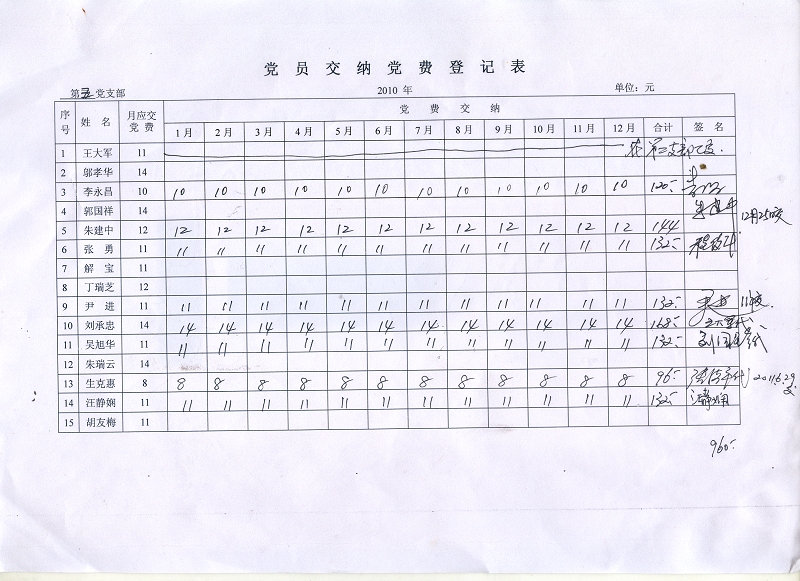 党员交纳党费登记表
第五党支部 2010 年 单位：元
序号 姓名 月应交党费 党费交纳
1月 2月 3月 4月 5月 6月 7月 8月 9月 10月 11月 12月 合计 签名
1 王大军 11
2 邬孝华 14
3 李永昌 10 10 10 10 10 10 10 10 10 10 10 10 10 120
4 郭国祥 14
5 朱建中 12 12 12 12 12 12 12 12 12 12 12 12 12 144 朱建中 12月25日交
6 张勇 11 11 11 11 11 11 11 11 11 11 11 11 11 132
7 解宝 11
8 丁瑞芝 12
9 尹进 11 11 11 11 11 11 11 11 11 11 11 11 11 132
10 刘承忠 14 14 14 14 14 14 14 14 14 14 14 14 14 168
11 吴旭华 11 11 11 11 11 11 11 11 11 11 11 11 11 132
12 朱瑞云 14
13 生克惠 8 8 8 8 8 8 8 8 8 8 8 8 8 96 2011.6.29.交
14 汪静娴 11 11 11 11 11 11 11 11 11 11 11 11 11 132
15 胡友梅 11
960